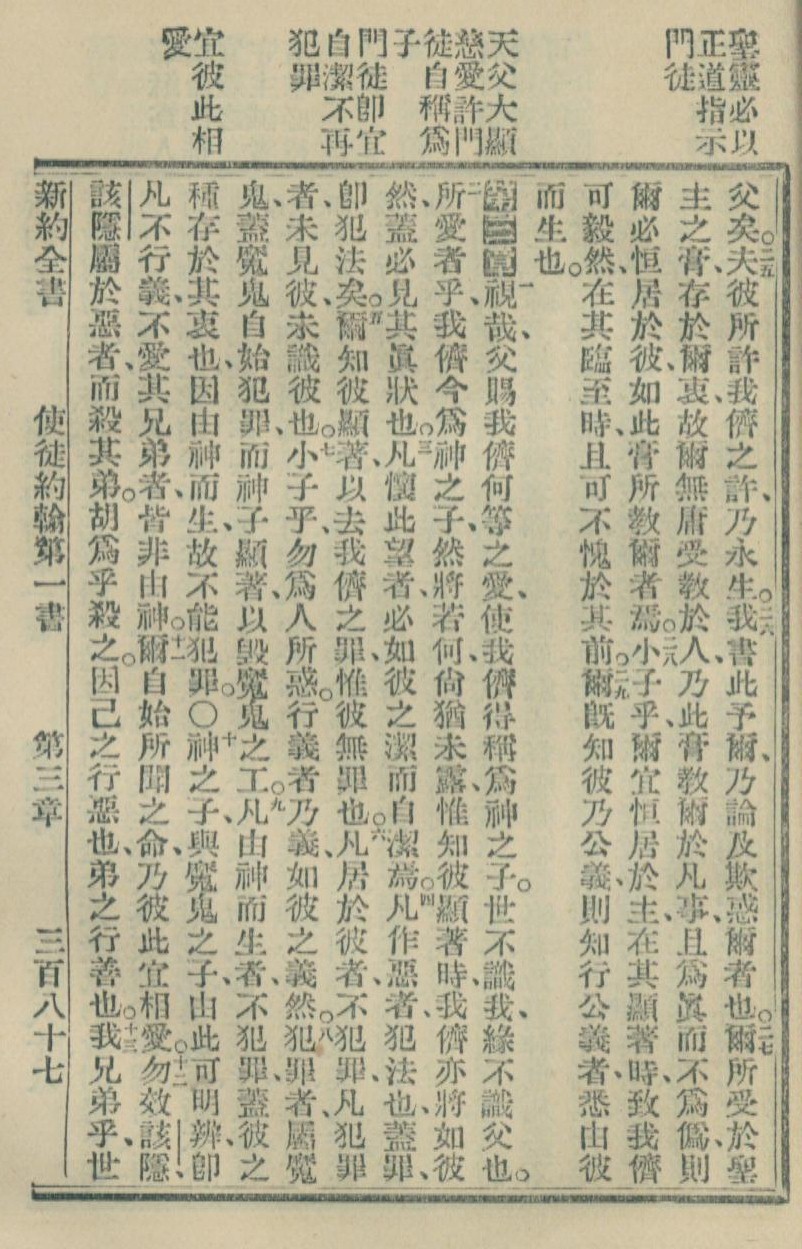 聖靈必以
正道指示
門徒
天父大顯
慈愛許門
徒自稱爲
子
門徒卽宜
自潔不再
犯罪
宜彼此相
愛
父矣。二五夫彼所許我儕之許、乃永生。二六我書此予爾、乃論及欺惑爾者也。二七爾所受於聖
主之膏、存於爾衷、故爾無庸受教於人、乃此膏教爾於凡事、且爲眞而不爲僞、則
爾必恒居於彼、如此膏所教爾者焉。二八小子乎、爾宜恒居於主、在其顯著時、致我儕
可毅然、在其臨至時、且可不愧於其前。二九爾旣知彼乃公義、則知行公義者、悉由彼
而生也。
第三章一視哉、父賜我儕何等之愛、使我儕得稱爲神之子。世不識我、緣不識父也。
二所愛者乎、我儕今爲神之子、然將若何、尙猶未露、惟知彼顯著時、我儕亦將如彼
然、蓋必見其眞狀也。三凡懷此望者、必如彼之潔而自潔焉。四凡作惡者、犯法也、蓋罪、
卽犯法矣。五爾知彼顯著、以去我儕之罪、惟彼無罪也。六凡居於彼者、不犯罪、凡犯罪
者、未見彼、未識彼也。七小子乎、勿爲人所惑。行義者乃義、如彼之義然。八犯罪者、屬魔
鬼、蓋魔鬼自始犯罪、而神子顯著、以毀魔鬼之工。九凡由神而生者、不犯罪、蓋彼之
種存於其衷也、因由神而生、故不能犯罪。〇十神之子、與魔鬼之子、由此可明辨、卽
凡不行義、不愛其兄弟者、皆非由神。十一爾自始所聞之命、乃彼此宜相愛。十二勿效該隱、
該隱屬於惡者、而殺其弟。胡爲乎殺之。因己之行惡也、弟之行善也。十三我兄弟乎、世
新約全書 使徒約翰第一書 第三章 三百八十七